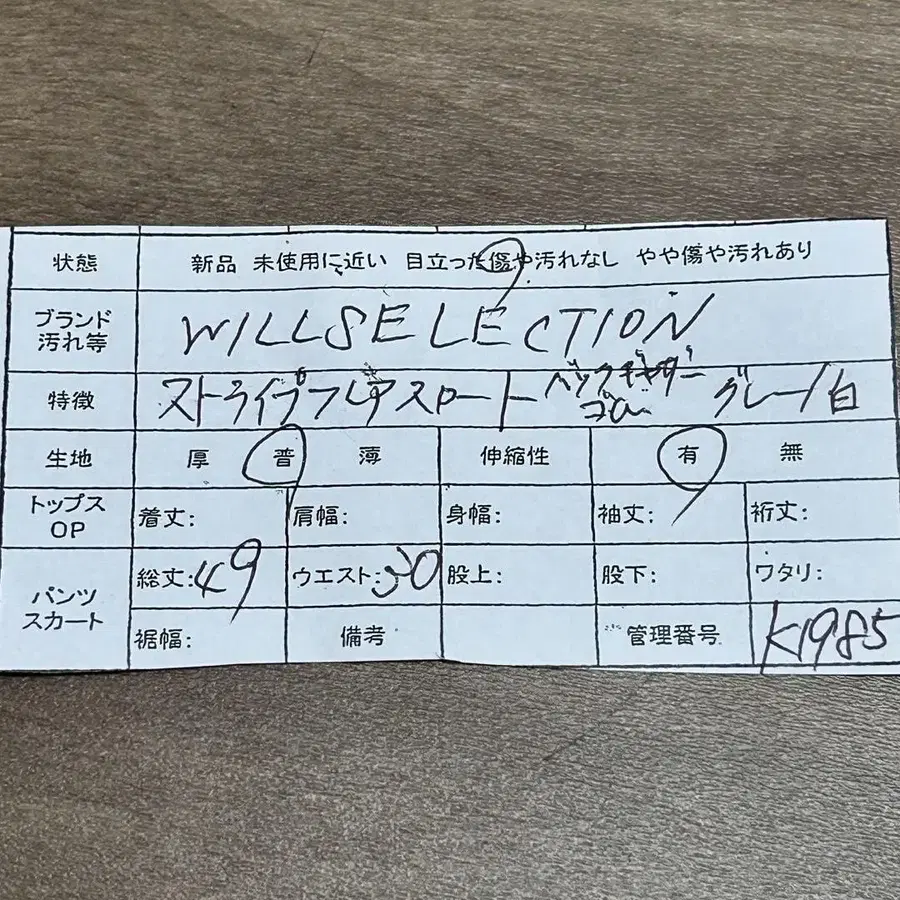 状態 新品 未使用に近い 目立った傷や汚れなし やや傷や汚れあり
ブランド
汚れ等
WILLSELECTION
特徴 ストライプフレアスカート バックギャザー グレー/白
ゴム
生地 厚 普 薄 伸縮性 有 無
トップス
OP
着丈: 肩幅: 身幅: 袖丈: 裄丈:
パンツ
スカート
総丈:49 ウエスト:30 股上: 股下: ワタリ:
裾幅: 備考 管理番号 K1985